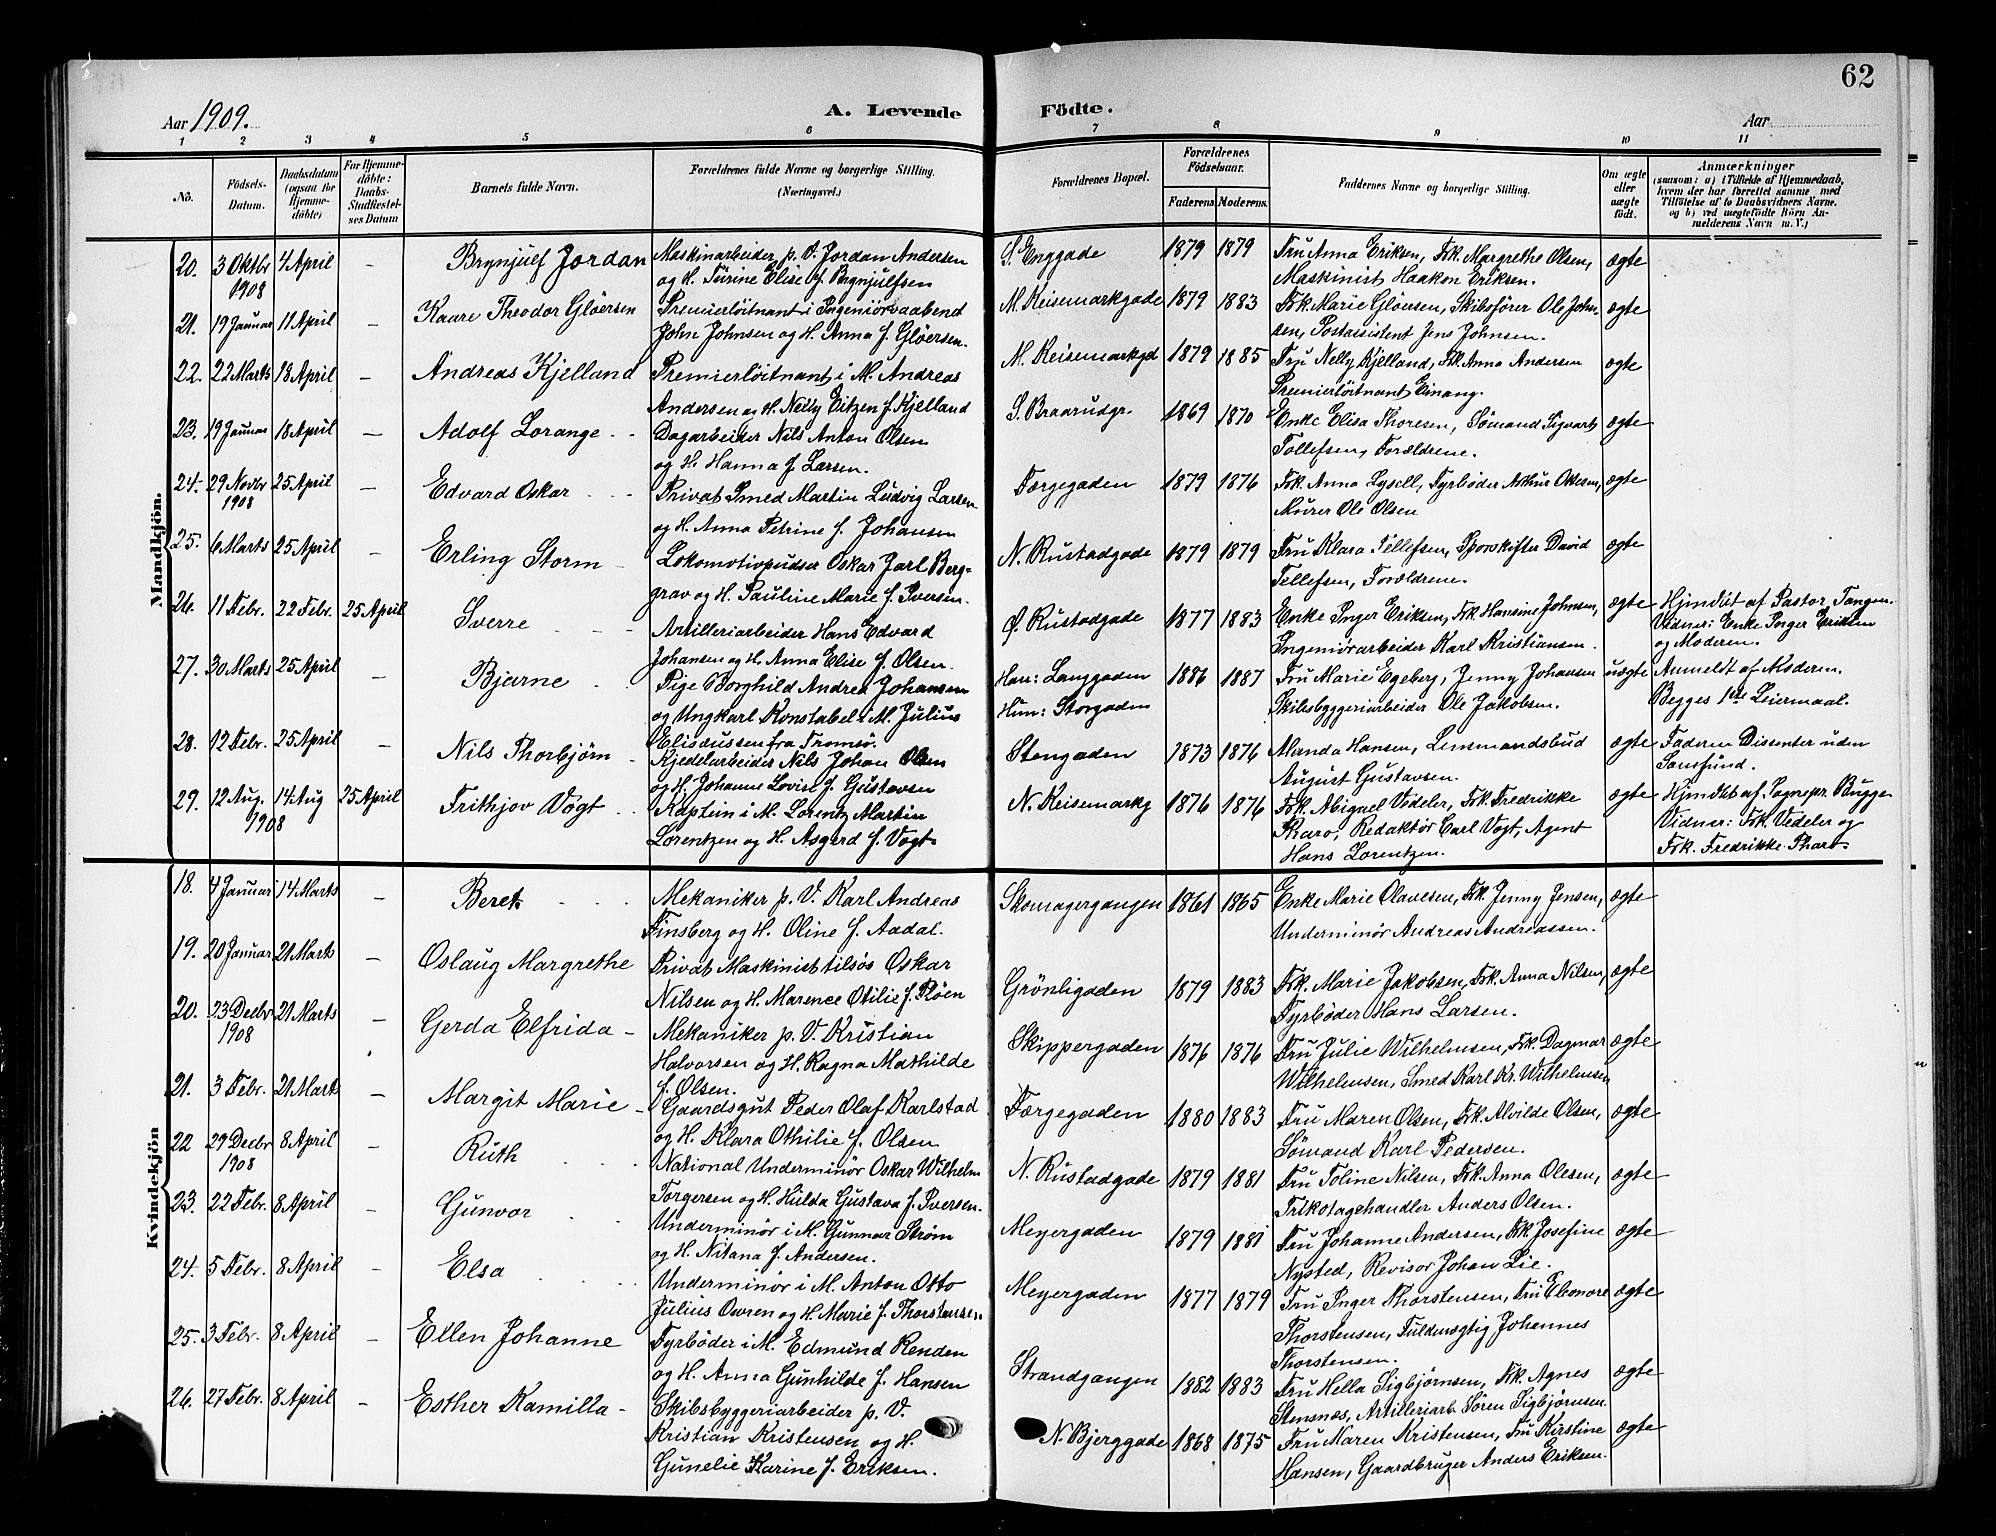 62
Aar 1909.
A. Levende Födte.
Aar
1 2 3 4 5 6 7 8 9 10 11
No.
Födsels-Datum.
Daabsdatum (ogsaa for Hjemme-döbte)
For Hjemme-döbte: Daabs-Stadfæstel-ses Datum
Barnets fulde Navn.
Forældrenes fulde Navne og borgerlige Stilling. (Næringsvei.)
Forældrenes Bopæl.
Forældrenes Födselsaar.
Faderens. Moderens.
Faddernes Navne og borgerlige Stilling.
Om ægte eller uægte födt.
Anmærkninger
(saasom: a) i Tilfælde af Hjemmedaab,
hvem der har forrettet samme, med
Tilföielse af to Daabsvidners Navne,
og b) ved uægtefödte Börn An-
melderens Navn m. V.)
Mandkjön.
20. 3 Oktbr 1908 4 April - Brynjulf Jordan
Maskinarbeider p. V. Jordan Andersen
og H. Turine Elise f. Brynjulfsen
S. Enggade 1879 1879
Fru Anna Eriksen, Frk. Margrethe Olsen,
Maskinist Haakon Eriksen.
ægte
21. 19 Januar 11 April - Kaare Theodor Gløersen
Premierløitnant i Ingeniørvaabenet
John Johnsen og H. Anna f. Gløersen.
M. Keisemarkgade 1879 1883
Frk. Marie Gløersen, Skibsfører Ole John-
sen, Postassistent Jens Johnsen.
ægte
22. 22 Marts 18 April - Andreas Kjelland
Premierløitnant i M. Andreas
Andersen og H. Nelly Eitzen f. Kjelland
M. Keisemarkgd 1879 1885
Fru Nelly Kjelland, Frk. Anna Andersen
Premierløitnant Einang.
ægte
23. 19 Januar 18 April - Adolf Lorange
Dagarbeider Nils Anton Olsen
og H. Hanna f. Larsen.
S. Braarudgr. 1869 1870
Enke Elisa Thoresen, Sømand Sigvart
Tollefsen, Forældrene.
ægte
24. 29 Novbr 1908 25 April - Edvard Oskar
Privat Smed Martin Ludvig Larsen
og H. Anna Petrine f. Johansen
Færgegaden 1879 1876
Frk. Anna Lysell, Fyrbøder Arthur Olsen,
Murer Ole Olsen
ægte
25. 6 Marts 25 April - Erling Storm
Lokomotivpudser Oskar Jarl Berg=
grav og H. Pauline Marie f. Iversen.
N. Rustadgade 1879 1879
Fru Klara Tellefsen, Sporskifter David
Tellefsen, Forældrene.
ægte
26. 11 Febr. 22 Febr. 25 April Sverre
Artilleriarbeider Hans Edvard
Johansen og H. Anna Elise f. Olsen.
Ø. Rustadgade 1877 1883
Enke Inger Eriksen, Frk. Hansine Johnsen,
Ingeniørarbeider Karl Kristiansen.
ægte
Hjmdøbt af Pastor Tangen.
Vidner: Enke Inger Eriksen
og Moderen.
27. 30 Marts 25 April - Bjarne
Pige Borghild Andrea Johansen
og Ungkarl Konstabel i M. Julius
Elisæussen fra Tromsø.
Han: Langgaden
Hun: Storgaden
1886 1887
Fru Marie Egeberg, Jenny Johansen
Skibsbyggeriarbeider Ole Jakobsen.
uægte
Anmeldt af Moderen.
Begges 1ste Leiermaal.
28. 12 Febr. 25 April - Nils Thorbjørn
Kjedelarbeider Nils Johan Olsen
og H. Johanne Lovise f. Gustavsen
Stengaden 1873 1876
Manda Hansen, Lensmandsbud
August Gustavsen.
ægte
Faderen Dissenter uden
Samfund.
29. 12 Aug. 1908 14 Aug 25 April Frithjov Vogt
Kaptein i M. Lorentz Martin
Lorentzen og H. Asgerd f. Vogt
N. Keisemarkg 1876 1876
Frk. Abigael Vedeler, Frk. Fredrikke
Tharo, Redaktør Carl Vogt, Agent
Hans Lorentzen.
ægte
Hjmdøbt af. Sognepr. Bugge
Vidner: Frk. Vedeler og
Frk. Fredrikke Tharo.
Kvindekjön
18. 4 Januar 14 Marts - Beret
Mekaniker p. V. Karl Andreas
Finsberg og H. Oline f. Aadal.
Skomagergangen 1861 1865
Enke Marie Olavesen, Frk. Jenny Jensen,
Underminør Andreas Andreassen.
ægte
19. 20 Januar 21 Marts - Oslaug Margrethe
Privat Maskinist tilsøs Oskar
Nilsen og H. Marence Otilie f. Fløen
Grønligaden 1879 1883
Frk. Marie Jakobsen, Frk. Anna Nilsen,
Fyrbøder Hans Larsen.
ægte
20. 23 Decbr 1908 21 Marts - Gerda Elfrida
Mekaniker p. V. Kristian
Halvorsen og H. Ragna Mathilde
f. Olsen.
Skippergaden 1876 1876
Fru Julie Wilhelmsen, Frk. Dagmar
Wilhelmsen, Smed Karl Kr. Wilhelmsen
ægte
21. 3 Febr. 21 Marts - Margit Marie
Gaardsgut Peder Olaf Karlstad
og H. Klara Othilie f. Olsen
Færgegaden 1880 1883
Fru Maren Olsen, Frk. Alvilde Olsen,
Sømand Karl Pedersen.
ægte
22 29 Decbr 1908 8 April - Ruth
National Underminør Oskar Wilhelm
Torgersen og H. Hulda Gustava f. Iversen.
N. Rustadgade 1879 1881
Fru Toline Nilsen, Frk. Anna Olesen,
Trikotagehandler Anders Olsen.
ægte
23. 22 Febr. 8 April - Gunvor
Underminør i M. Gunnar Strøm
og H. Nitana f. Andersen.
Meyergaden 1879 1881
Fru Johanne Andersen, Frk Josefine
Nysted, Revisor Johan Lie.
ægte
24. 5 Febr. 8 April - Elsa
Underminør i M. Anton Otto
Julius Ovren og H. Marie f. Thorstensen.
Meyergaden 1877 1879
Fru Inger Thorstensen, Fru Eleonore
Thorstensen, Fuldmægtig Johannes
Thorstensen.
ægte
25. 3 Febr. 8 April - Ellen Johanne
Fyrbøder i M. Edmund Renden
og H. Anna Gunhilde f. Hansen
Strandgangen 1882 1883
Fru Hella Sigbjørnsen, Frk. Agnes
Stensnæs, Artilleriarb. Søren Sigbjørnsen.
ægte
26. 27 Febr. 8 April - Esther Kamilla
Skibsbyggeriarbeider p. V.
Kristian Kristensen og H.
Gunelie Karine f. Eriksen.
N. Bjerggade 1868 1875
Fru Maren Kristensen, Fru Kirstine
Hansen, Gaardbruger Anders Eriksen.
ægte